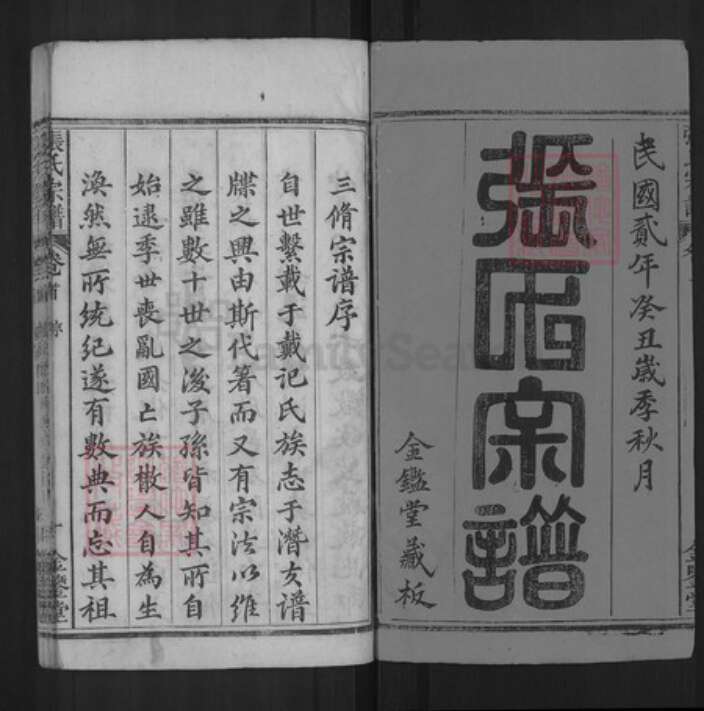 民國貳年癸丑歲季秋月
張氏宗譜
金鑑堂藏板
三脩宗谱序
自世繫載于戴记氏族志于潛友譜
牒之興由斯代著而又有宗法以維
之雖數十世之後子孫皆知其所自
始逮季世喪亂國亡族散人自為生
渙然無所統纪遂有數典而忘其祖
張氏宗譜
卷首
序
金鑑堂
FamilySearch